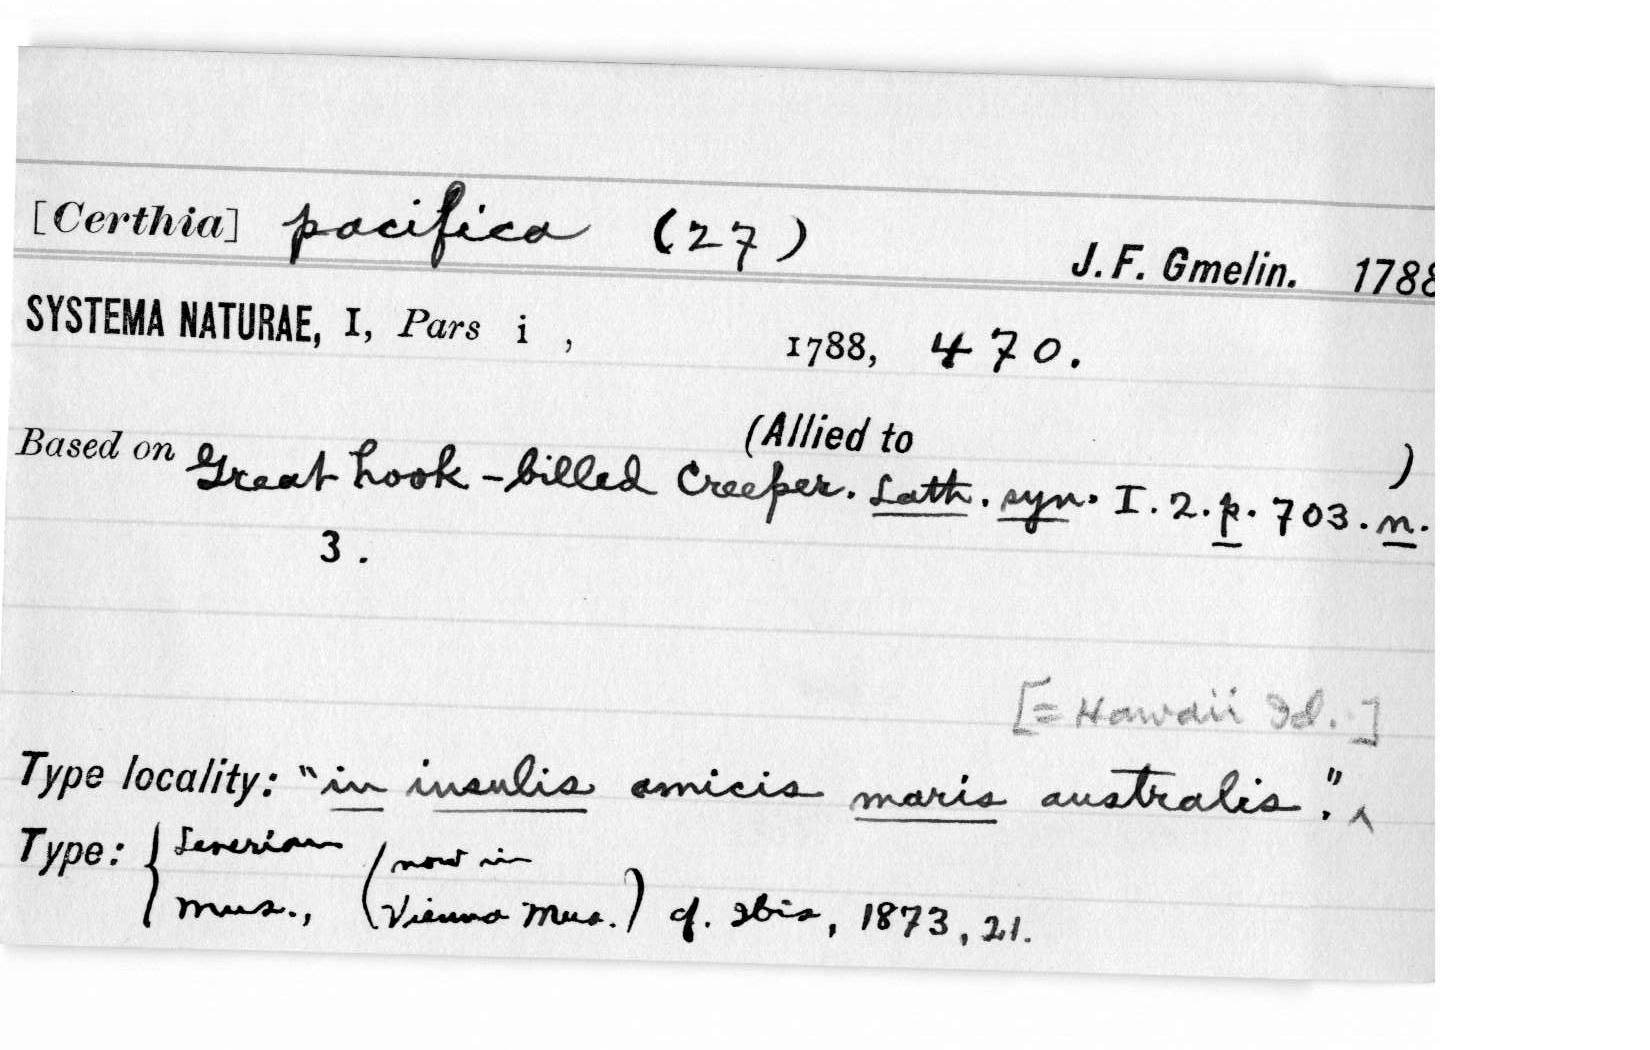 [Certhia] pacifica (27)
J.F. Gmelin. 1788
SYSTEMA NATURAE, I, Pars i, 1788, 470.
(Allied to )
Based on Great hook-billed Creeper. Lath. syn. I. 2. p. 703. n.
3.
[= Hawaii Id.]
Type locality: "in insulis amicis maris australis". ^
Type: { Leverian (now in
mus., Vienna Mus.) cf. Ibis, 1873, 21.